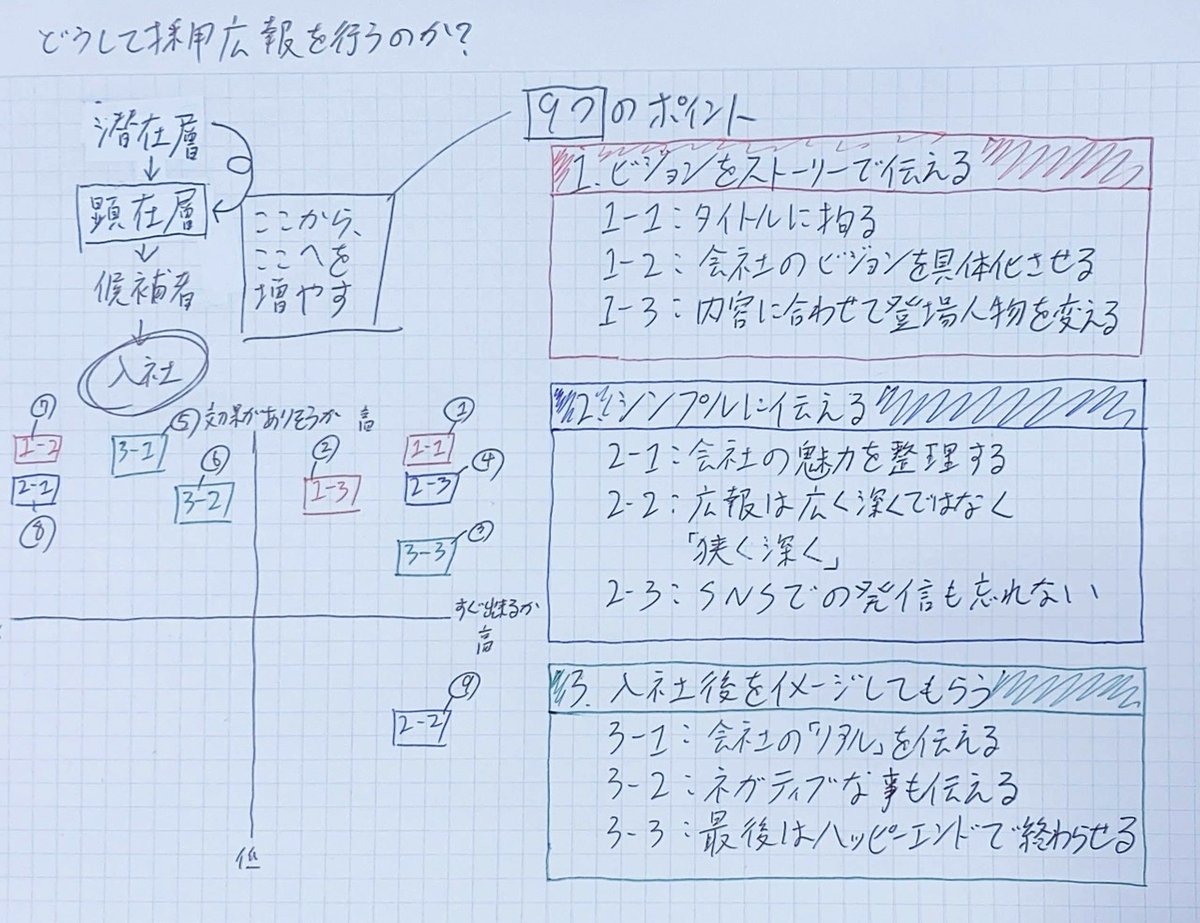 どうして採用広報を行うのか?
潜在層
↓
顕在層
↓
候補者
↓
入社
ここから、
ここへを
増やす
9つのポイント
1.ビジョンをストーリーで伝える
1-1:タイトルに拘る
1-2:会社のビジョンを具体化させる
1-3:内容に合わせて登場人物を変える
2.シンプルに伝える
2-1:会社の魅力を整理する
2-2:広報は広く深くではなく
「狭く深く」
2-3:SNSでの発信も忘れない
3.入社後をイメージしてもらう
3-1:会社の「リアル」を伝える
3-2:ネガティブな事も伝える
3-3:最後はハッピーエンドで終わらせる
効果がありそうか 高
⑦
1-2
2-1
⑧
⑤
3-1
⑥
3-2
②
1-3
①
1-1
④
2-3
③
3-3
すぐ出来るか
高
⑨
2-2
低